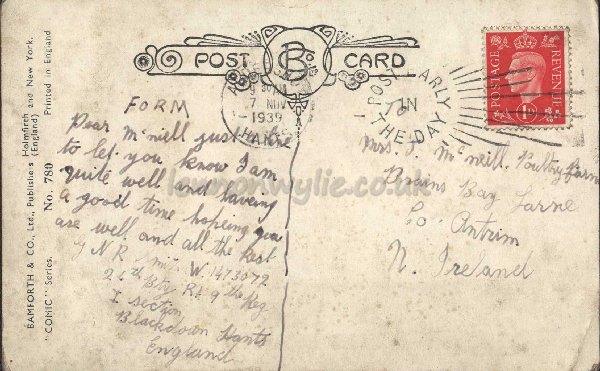 POST CARD
B Co. Ltd.
7 NOV
1939
HANTS
POST EARLY
IN
THE DAY
POSTAGE REVENUE
1D
FORM
Dear McNeill just a line
to let you know I am
quite well and haveing
a good time hopeing you
are well and all the rest
G N R W. 1473079
26th Bty RA 9th Reg
I section
Blackdown Hants
England
To
Mrs J. McNeill, Poultry Farm
Brains Bay Larne
Co. Antrim
N. Ireland
BAMFORTH & CO., Ltd., Publishers Holmfirth and New York.
(England)
"COMIC" Series. No. 780 Printed in England
lemonwylie.co.uk